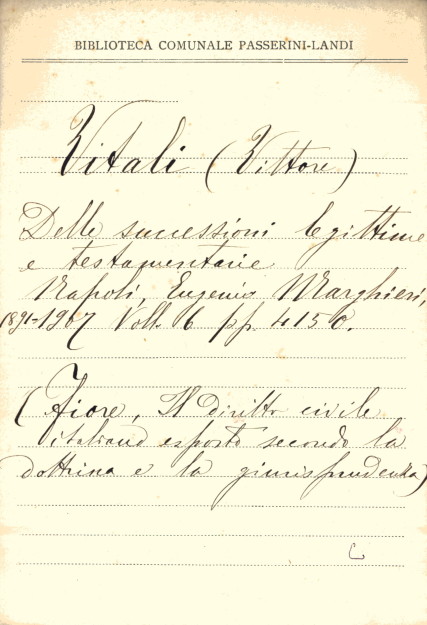 BIBLIOTECA COMUNALE PASSERINI-LANDI
Vitali (Vittore)
Delle successioni legittime
e testamentarie
Napoli, Eugenio Marghieri,
1891-1907 Voll. 6 pp. 4150.
(Fiore, Il diritto civile
italiano esposto secondo la
dottrina e la giurisprudenza)
C